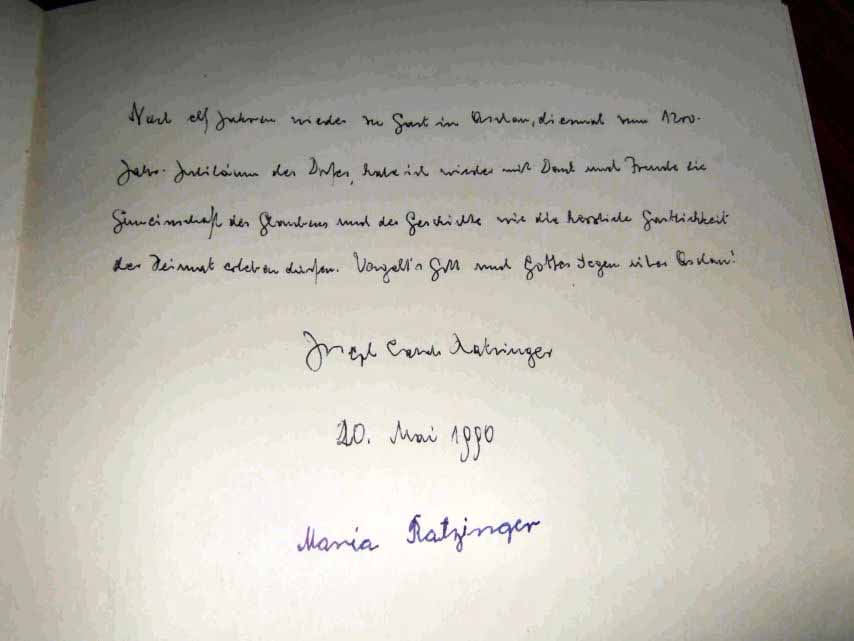 Nach elf Jahren wieder zu Gast in Aschau, diesmal zum 1200-
Jahr-Jubiläum des Dorfes, habe ich wieder mit Dank und Freude die
Gemeinschaft des Glaubens und der Geschichte wie die herzliche Gastlichkeit
der Heimat erleben dürfen. Vergelt's Gott und Gottes Segen über Aschau!
Joseph Card. Ratzinger
20. Mai 1990
Maria Ratzinger